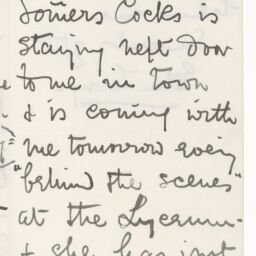 Somers Cocks is
staying next door
to me in town
& is coming with
me tomorrow
"behind the scenes"
at the Lyceum -
& she has just